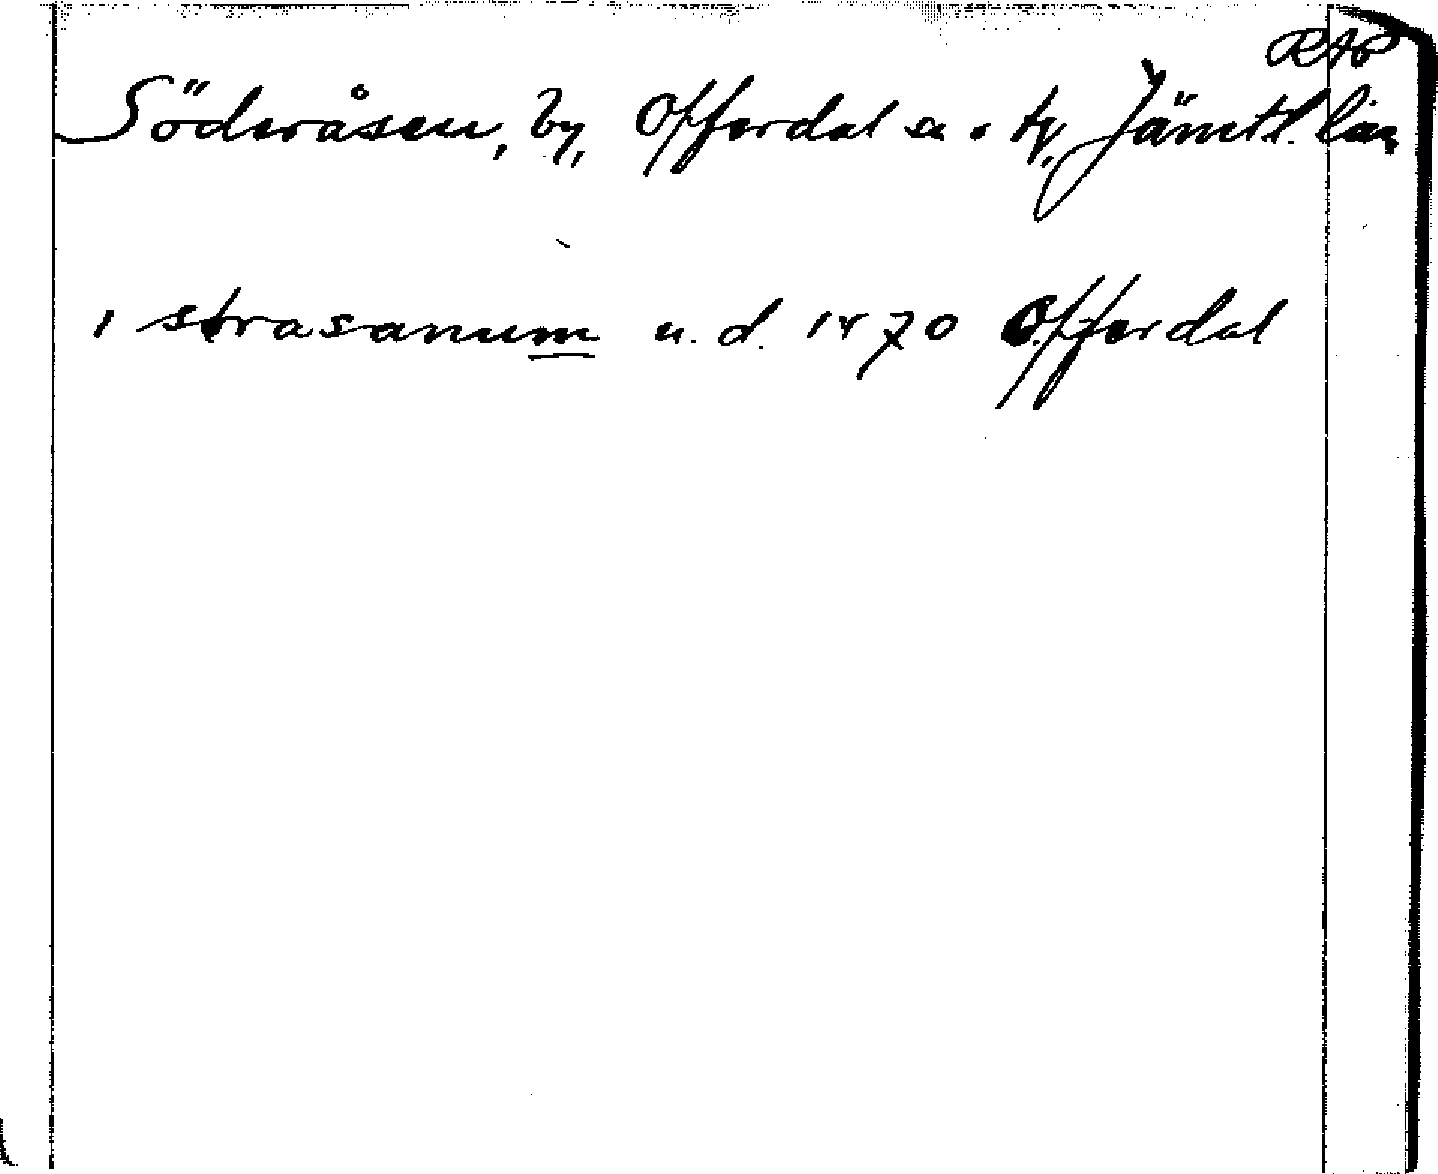 Söderåsen, by, Offerdal sn o tg, Jämtl. län
i strasanum u. d. 1470 Offerdal